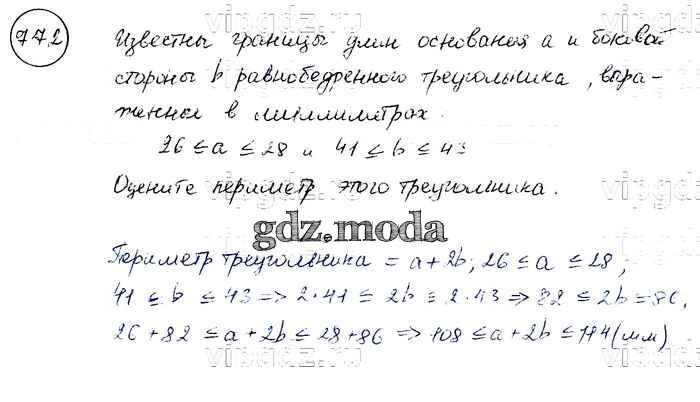 772
Известны границы длин основания a и боковой
стороны b равнобедренного треугольника, выра-
женные в миллиметрах.
26 ≤ a ≤ 28 и 41 ≤ b ≤ 43
Оцените периметр этого треугольника.
gdz.moda
Периметр треугольника = a + 2b; 26 ≤ a ≤ 28;
41 ≤ b ≤ 43 => 2·41 ≤ 2b ≤ 2·43 => 82 ≤ 2b ≤ 86,
26 + 82 ≤ a + 2b ≤ 28 + 86 => 108 ≤ a + 2b ≤ 114 (мм)